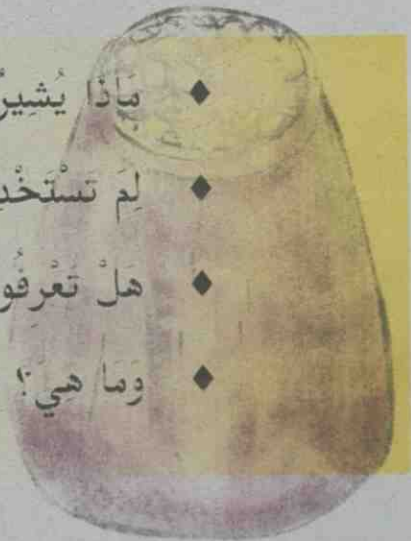 ♦ مَاذَا يُشِيرُ
♦ لِمَ تَسْتَخْدِ
♦ هَلْ تَعْرِفُو
♦ وَمَا هِيَ؟